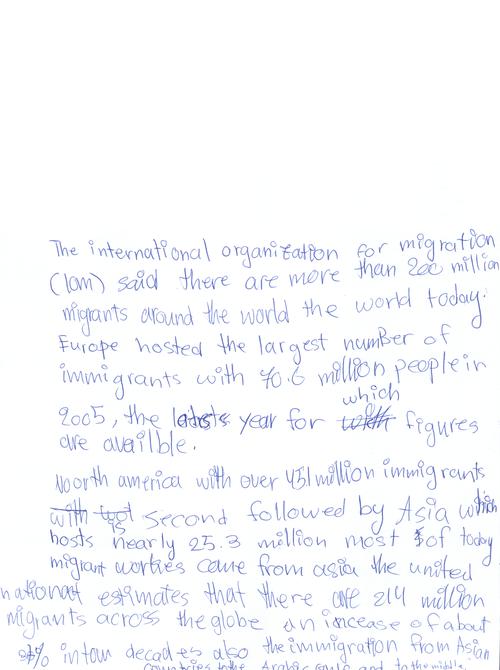 The international organization for migration
(Iom) said there are more than 200 million
migrants around the world the world today.
Europe hosted the largest number of
immigrants with 70.6 million people in
which
2005, the latests year for with figures
are availble.
North america with over 451 million immigrants
with is second followed by Asia which
hosts nearly 25.3 million most of today
migrant workies came from asia the united
national estimates that there are 214 million
migrants across the globe an increase of about
37% in tow decades also the immigration from Asian
countries to the Arabic and to the middle